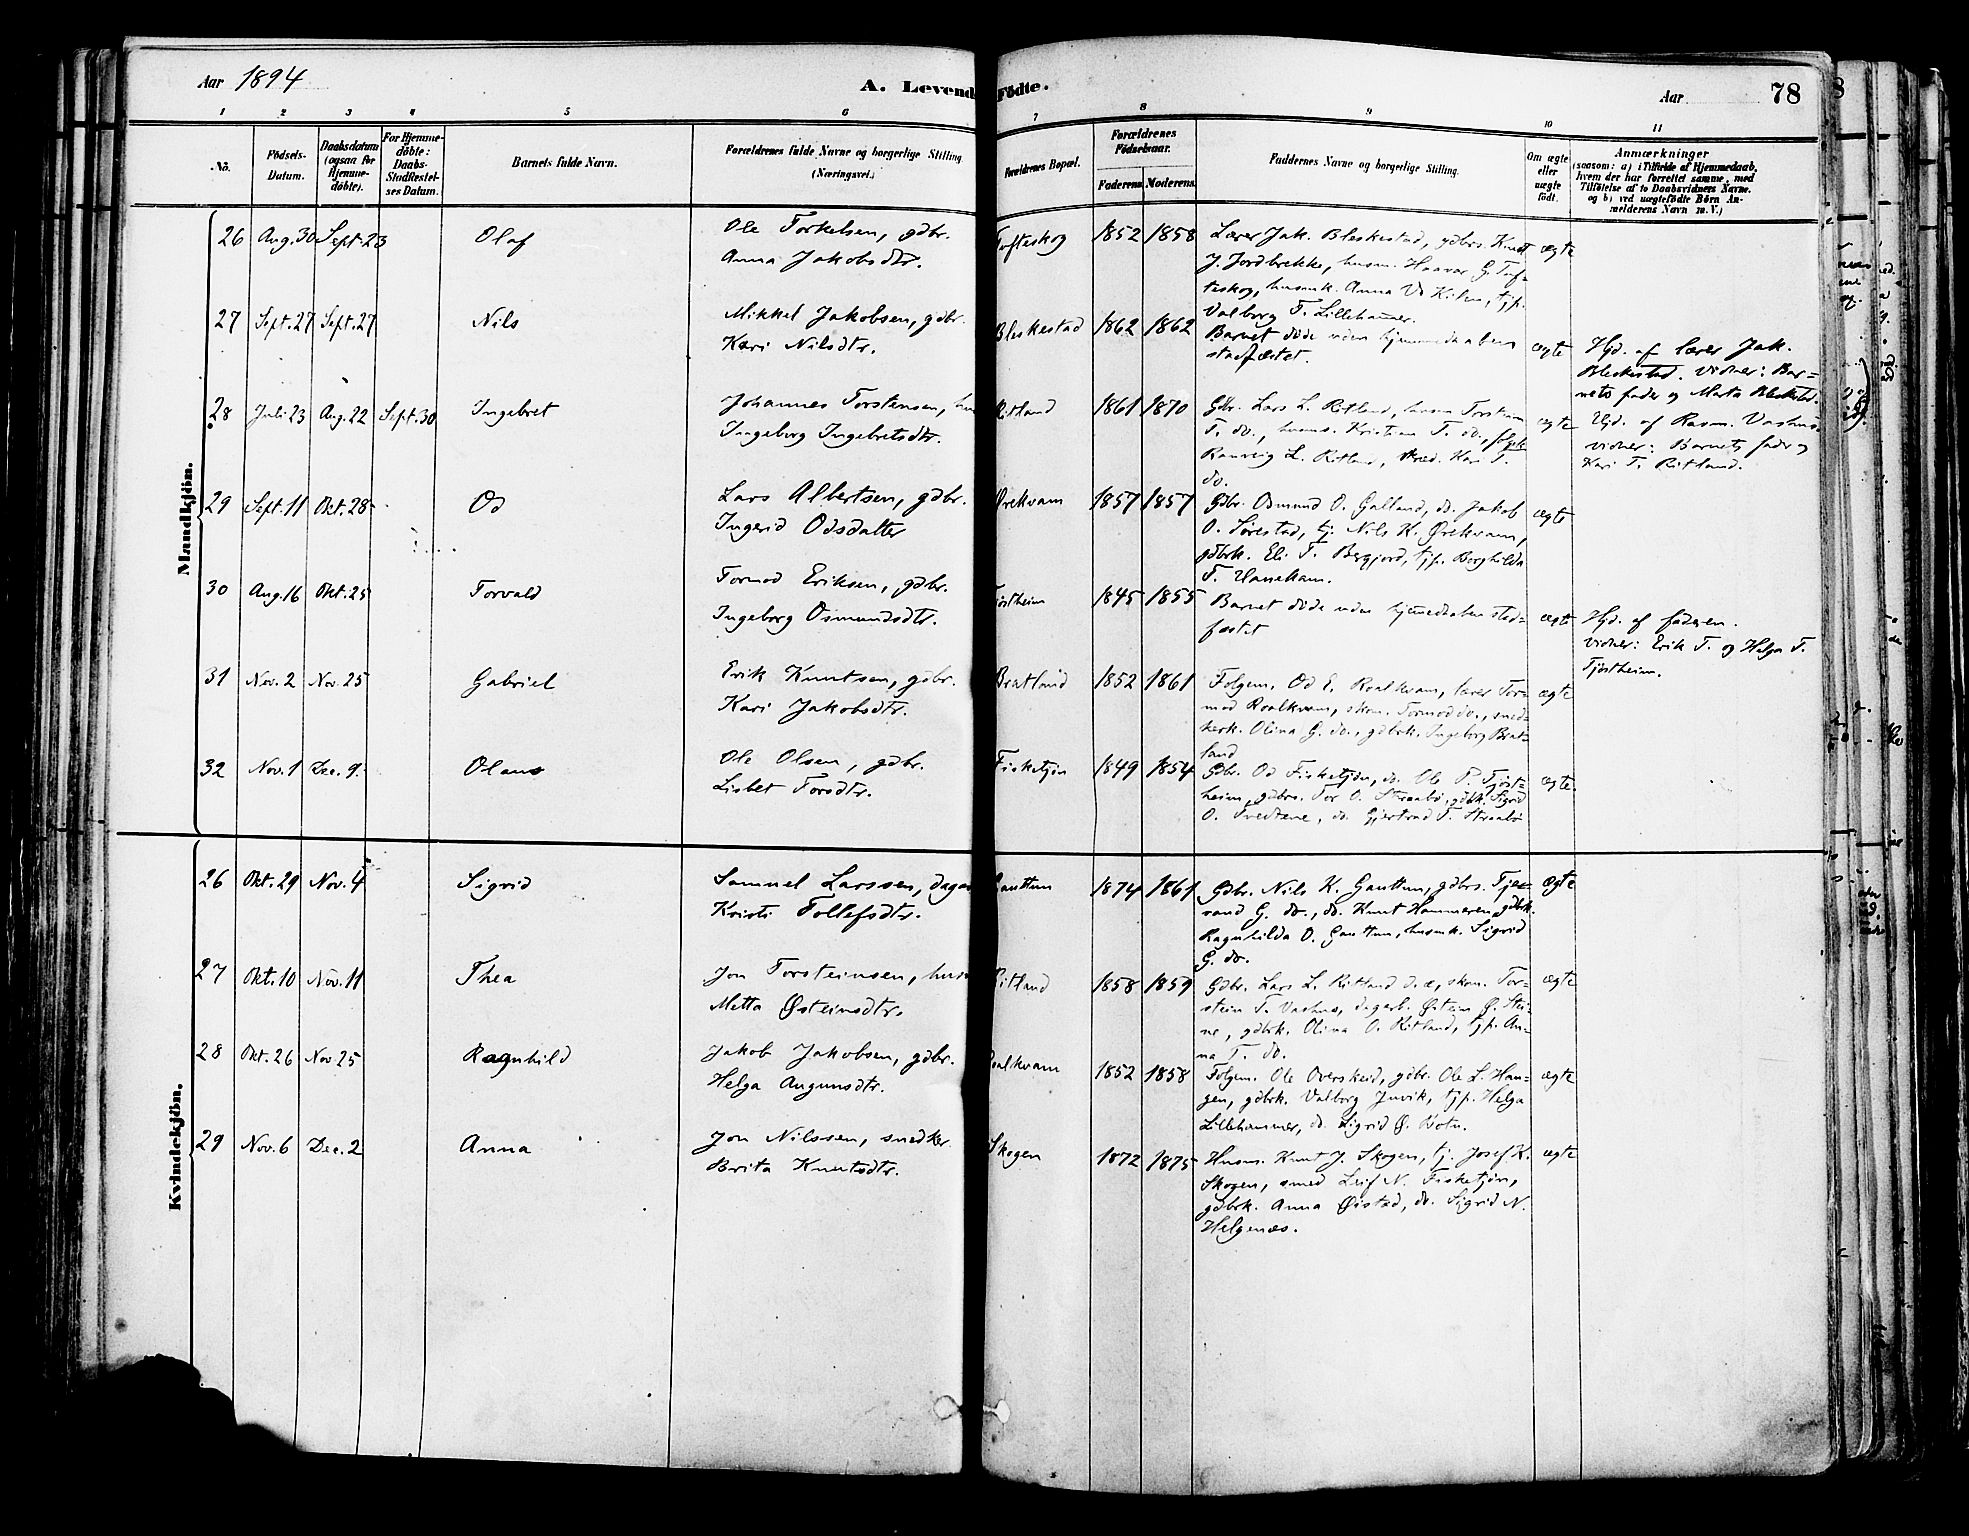 Aar 1894
A. Levende Födte.
Aar 78
1 2 3 4 5 6 7 8 9 10 11
No.
Födsels-
Datum.
Daabsdatum
(ogsaa for
Hjemme-
döbte).
For Hjemme-
döbte:
Daabs-
Stadfæstel-
ses Datum.
Barnets fulde Navn.
Forældrenes fulde Navne og borgerlige Stilling
(Næringsvei.)
Forældrenes Bopæl.
Forældrenes
Födselsaar.
Faderens Moderens
Faddernes Navne og borgerlige Stilling.
Om ægte
eller
uægte
födt.
Anmærkninger
(saasom: a) i Tilfælde af Hjemmedaab,
hvem der har forrettet samme, med
Tilföielse af to Daabsvidners Navne.
og b) ved uægtefödte Börn An-
melderens Navn m. V.)
Mandkjön.
26 Aug. 30 Sept. 23 Olaf
Ole Torkelsen, gdbr.
Anna Jakobsdtr.
Tofteskog 1852 1858
Lærer Jak. Bleskestad, gdbrs. Knut
J. Jordbrekke, husm. Haavar G. Tof-
teskog, husmk. Anna V. Kilen, tjp.
Valborg T. Lillehammer.
ægte
27 Sept. 27 Sept. 27 Nils
Mikkel Jakobsen, gdbr.
Kari Nilsdtr.
Bleskestad 1862 1862
Barnet döde uden hjemmedaaben
stadfæstet.
ægte
Hjd. af lærer Jak.
Bleskestad. Vidner: Bar-
nets fader og Marta Bleskestad.
28 Juli 23 Aug. 22 Sept. 30 Ingebret
Johannes Torstensen,
Ingeborg Ingebretsdtr.
Ritland 1861 1870
Gdbr. Lars L. Ritland, husm. Torstein
T. do., husms. Kristian T. do.,
Ranveig L. Ritland, Kari T.
do.
ægte
Hjd. af Rasm. Vashus
vidner: Barnets fader og
Kari T. Ritland.
29 Sept. 11 Okt. 28 Od
Lars Albertsen, gdbr.
Ingerid Odsdatter
Ørekvam 1857 1857
Gdbr. Osmund O. Galland, do. Jakob
O. Sørestad, tj. Nils K. Ørekvam,
gdbrk. Eli T. Bergjord, tjp. Borghilda
T. Hanekam.
ægte
30 Aug. 16 Okt. 25 Torvald
Tormod Eriksen, gdbr.
Ingeborg Osmundsdtr.
Tjøstheim 1845 1855
Barnet döde uden hjemmedaaben stad-
fæstet
ægte
Hjd. af faderen.
vidner: Erik T. og Helga T.
Tjøstheim.
31 Nov. 2 Nov. 25 Gabriel
Erik Knutsen, gdbr.
Kari Jakobsdtr.
Bratland 1852 1861
Folgem. Od E. Roalkvam, lærer Tor-
mod Roalkvam, skom. Tormod do., sned-
kerk. Olina G. do., gdbrk. Ingeborg Brat-
land
ægte
32 Nov. 1 Dec. 9. Olaus
Ole Olsen, gdbr.
Lisbet Torsdtr.
Fisketjøn 1849 1854
Gdbr. Od Fisketjøn, do. Ole T. Tjøst-
heim, gdbrs. Tor O. Straabø, gdbk. Sigrid
O. Tvedtene, do. Gjertrud T. Straabø
ægte.
Kvindekjön.
26 Okt. 29 Nov. 4 Sigrid
Samuel Larssen,
Kristi Tollefsdtr.
Gauttun 1874 1861
Gdbr. Nils K. Gauttun, gdbrs. Tjæ-
rand G. do., do. Knut Hammeren, gdbrk.
Ragnhilda O. Gauttun, husmk. Sigrid
G. do.
ægte
27 Okt. 10 Nov. 11 Thea
Jon Torsteinsen, husm
Metta Østeinsdtr.
Ritland 1858 1859
Gdbr. Lars L. Ritland d.æ., skom. Tor-
stein T. Vashus, dagarb. Østein Ø. Stei-
ne, gdbrk. Olina O. Ritland, tjp. An-
na T. do.
ægte
28 Okt. 26 Nov 25 Ragnhild
Jakob Jakobsen, gdbr.
Helga Augunsdtr.
Roalkvam 1852 1858
Folgem. Ole Overskeid, gdbr. Ole L. Hau-
gen, gdbrk. Valborg Juvik, tjp. Helga
Lillehammer, do. Sigrid Ø. Botn.
ægte
29 Nov. 6 Dec. 2 Anna
Jon Nilssen, snedker
Brita Knutsdtr.
Skogen 1872 1875
Husm. Knut J. Skogen, tj. Josef K.
Skogen, smed Leif N. Fisketjøn,
gdbrk. Anna Øistad, do. Sigrid N.
Helgenæs.
ægte